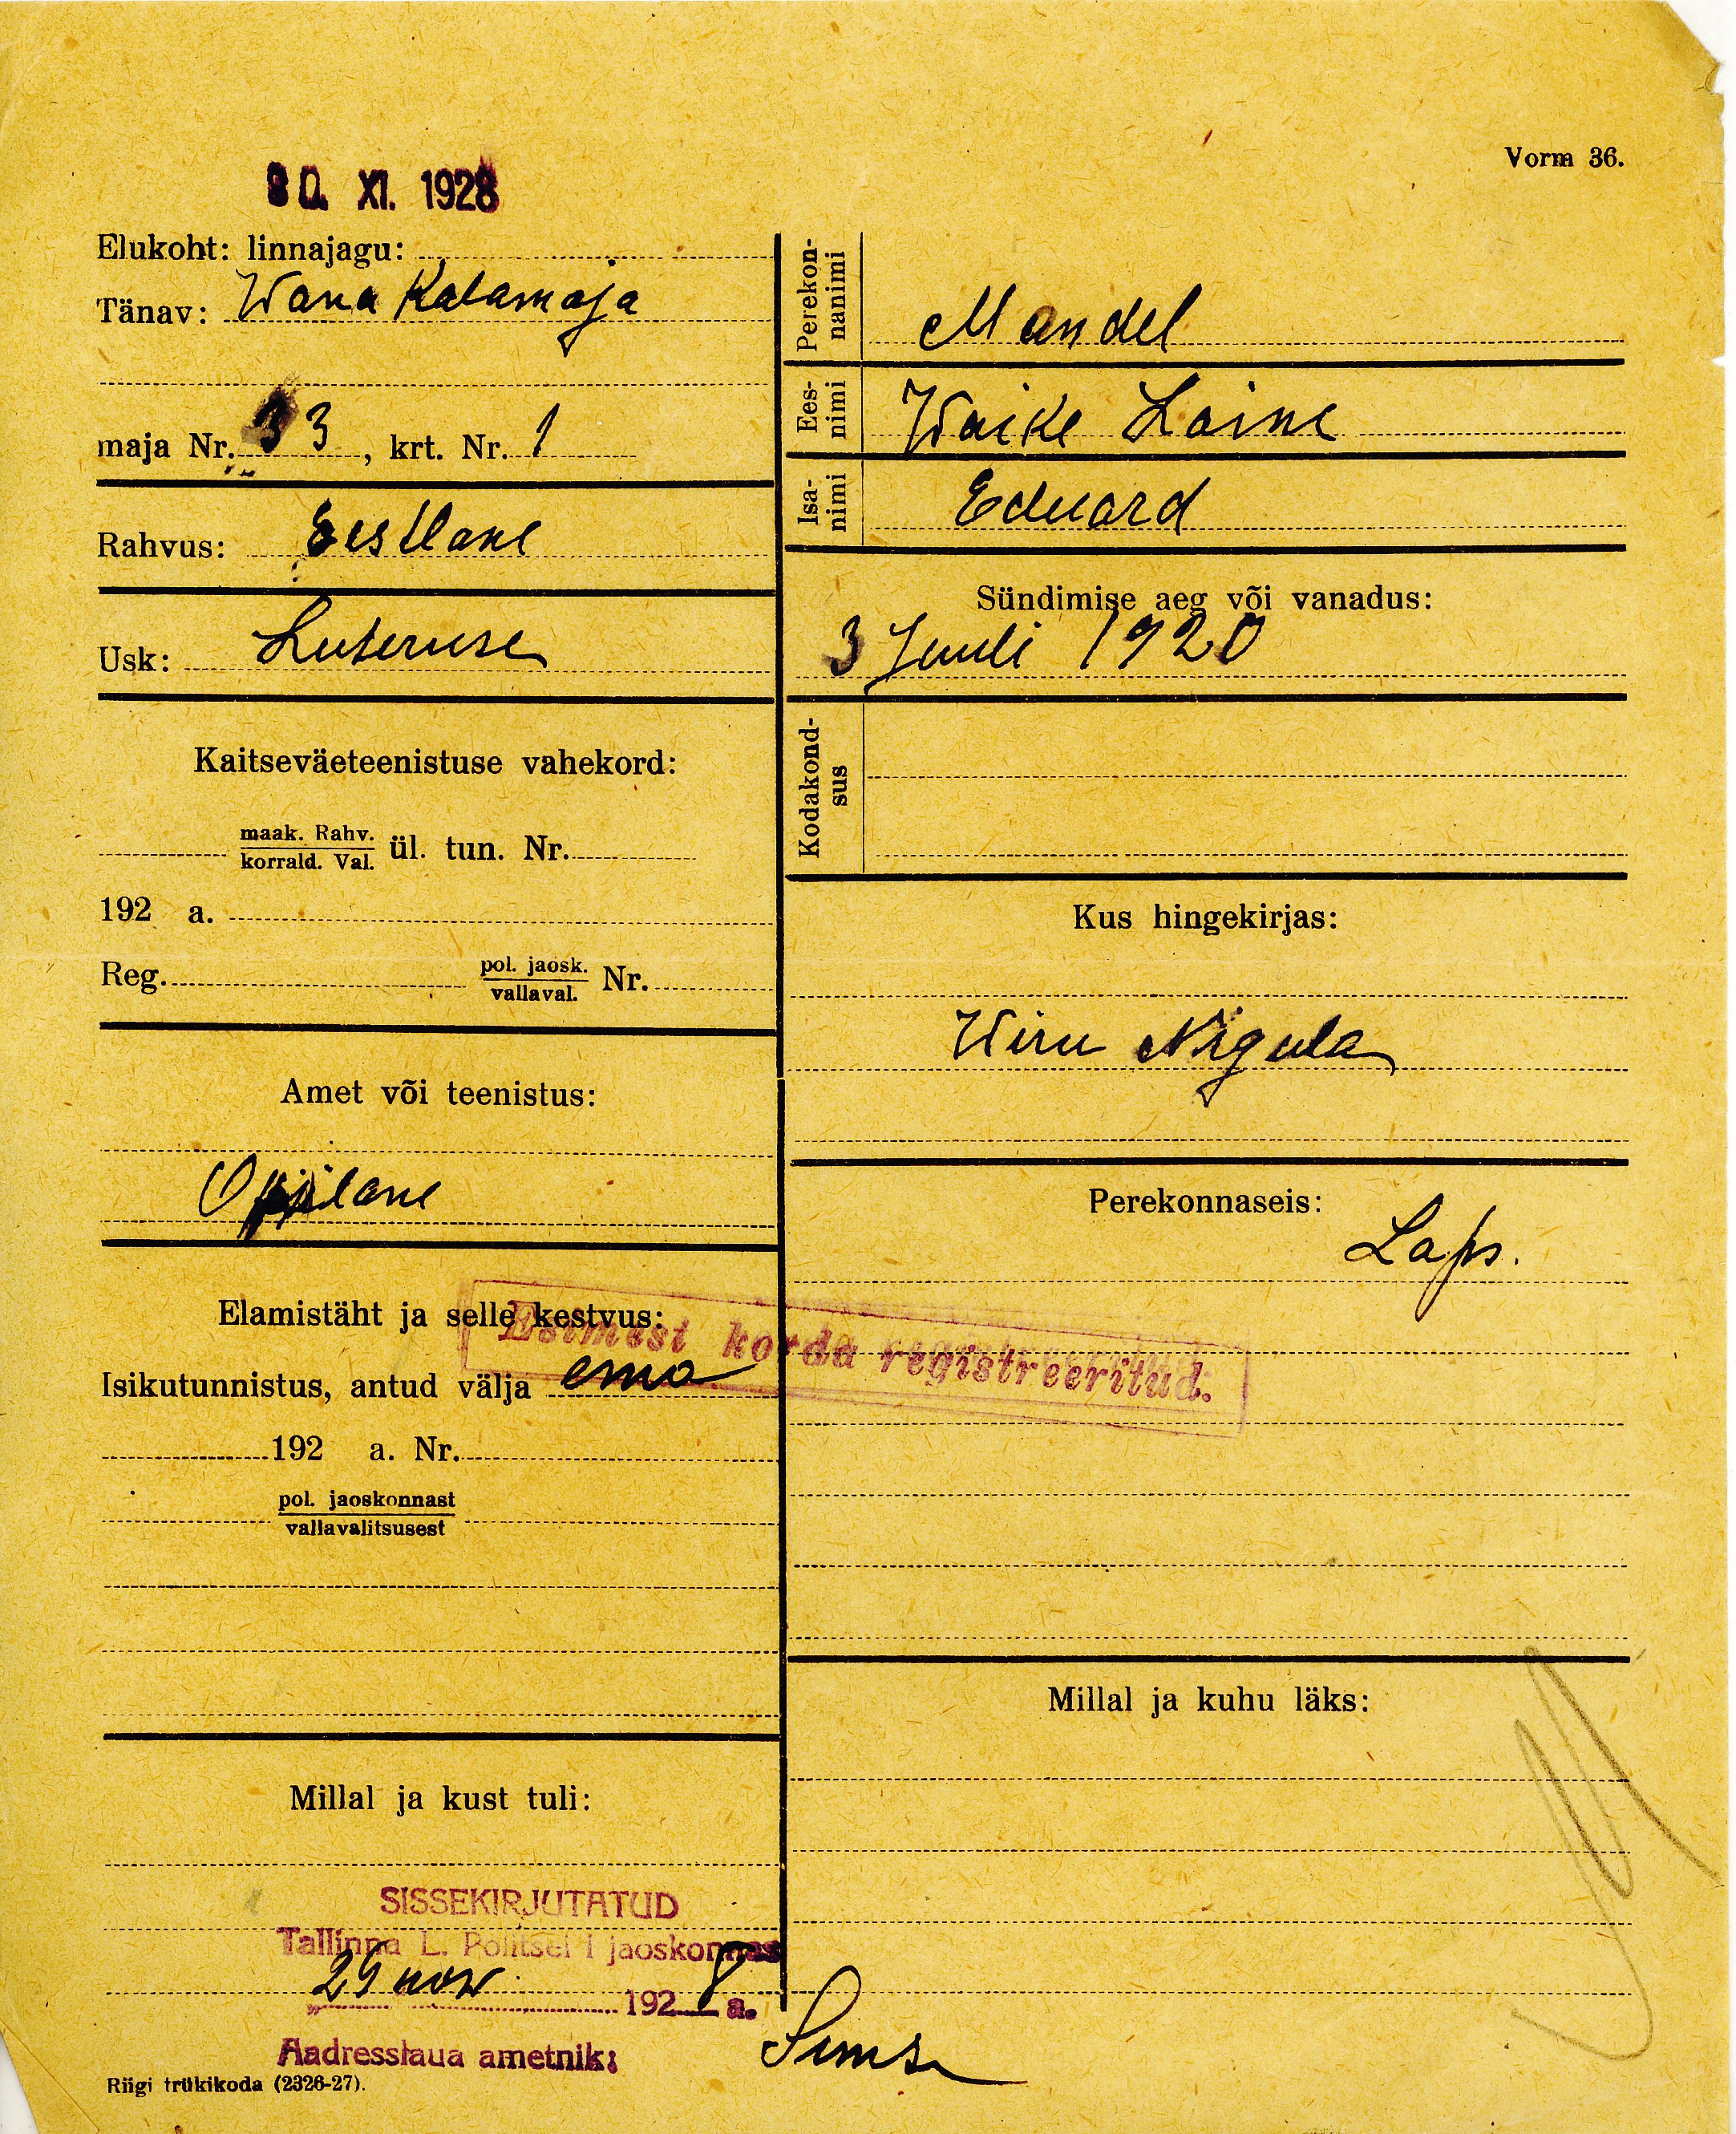 Vorm 36.
30. XI. 1928
Elukoht: linnajagu:
Tänav: Wana Kalamaja
maja Nr. 33, krt. Nr. 1
Rahvus: Eestlane
Usk: Luteruse
Kaitseväeteenistuse vahekord:
maak. Rahv.
korrald. Val. ül. tun. Nr.
192 a.
Reg. pol. jaosk.
vallaval. Nr.
Amet või teenistus:
Opilane
Elamistäht ja selle kestvus:
Isikutunnistus, antud välja ema
192 a. Nr.
pol. jaoskonnast
vallavalitsusest
Millal ja kust tuli:
SISSEKIRJUTATUD
Tallinna L. Politsei I jaoskonnas
29 nov 1928 a.
Aadresslaua ametnik:
Riigi trükikoda (2326-27).
Perekon-
nanimi
Mandel
Ees-
nimi
Waike Laine
Isa-
nimi
Eduard
Sündimise aeg või vanadus:
3 Juuli 1920
Kodakond-
sus
Kus hingekirjas:
Wiru Nigula
Perekonnaseis:
Laps.
Esimest korda registreeritud.
Millal ja kuhu läks: